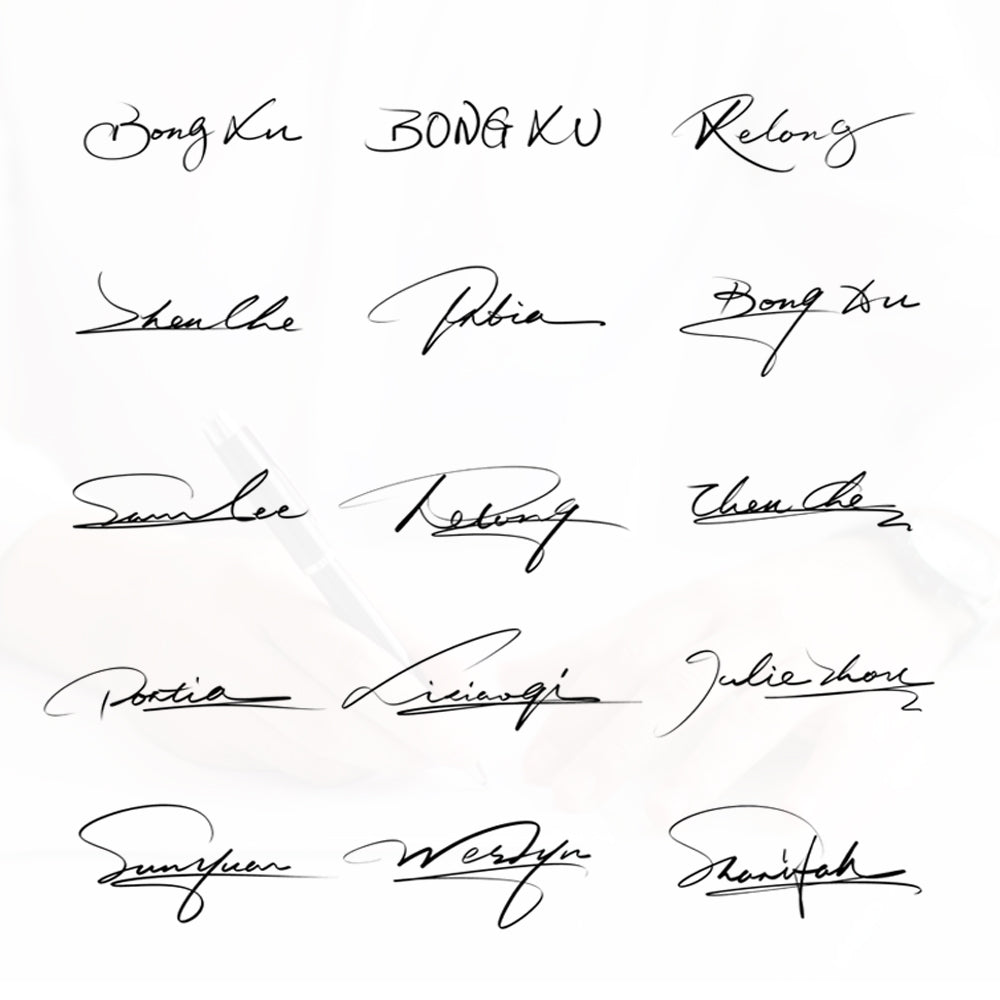 Bong Xu BONG XU Relong
ZhenChe Portia Bong Xu
Sam Lee Relong Zhen Che
Portia Lixiaoqi Julie Zhou
Sunyuan Weslyn Sharifah